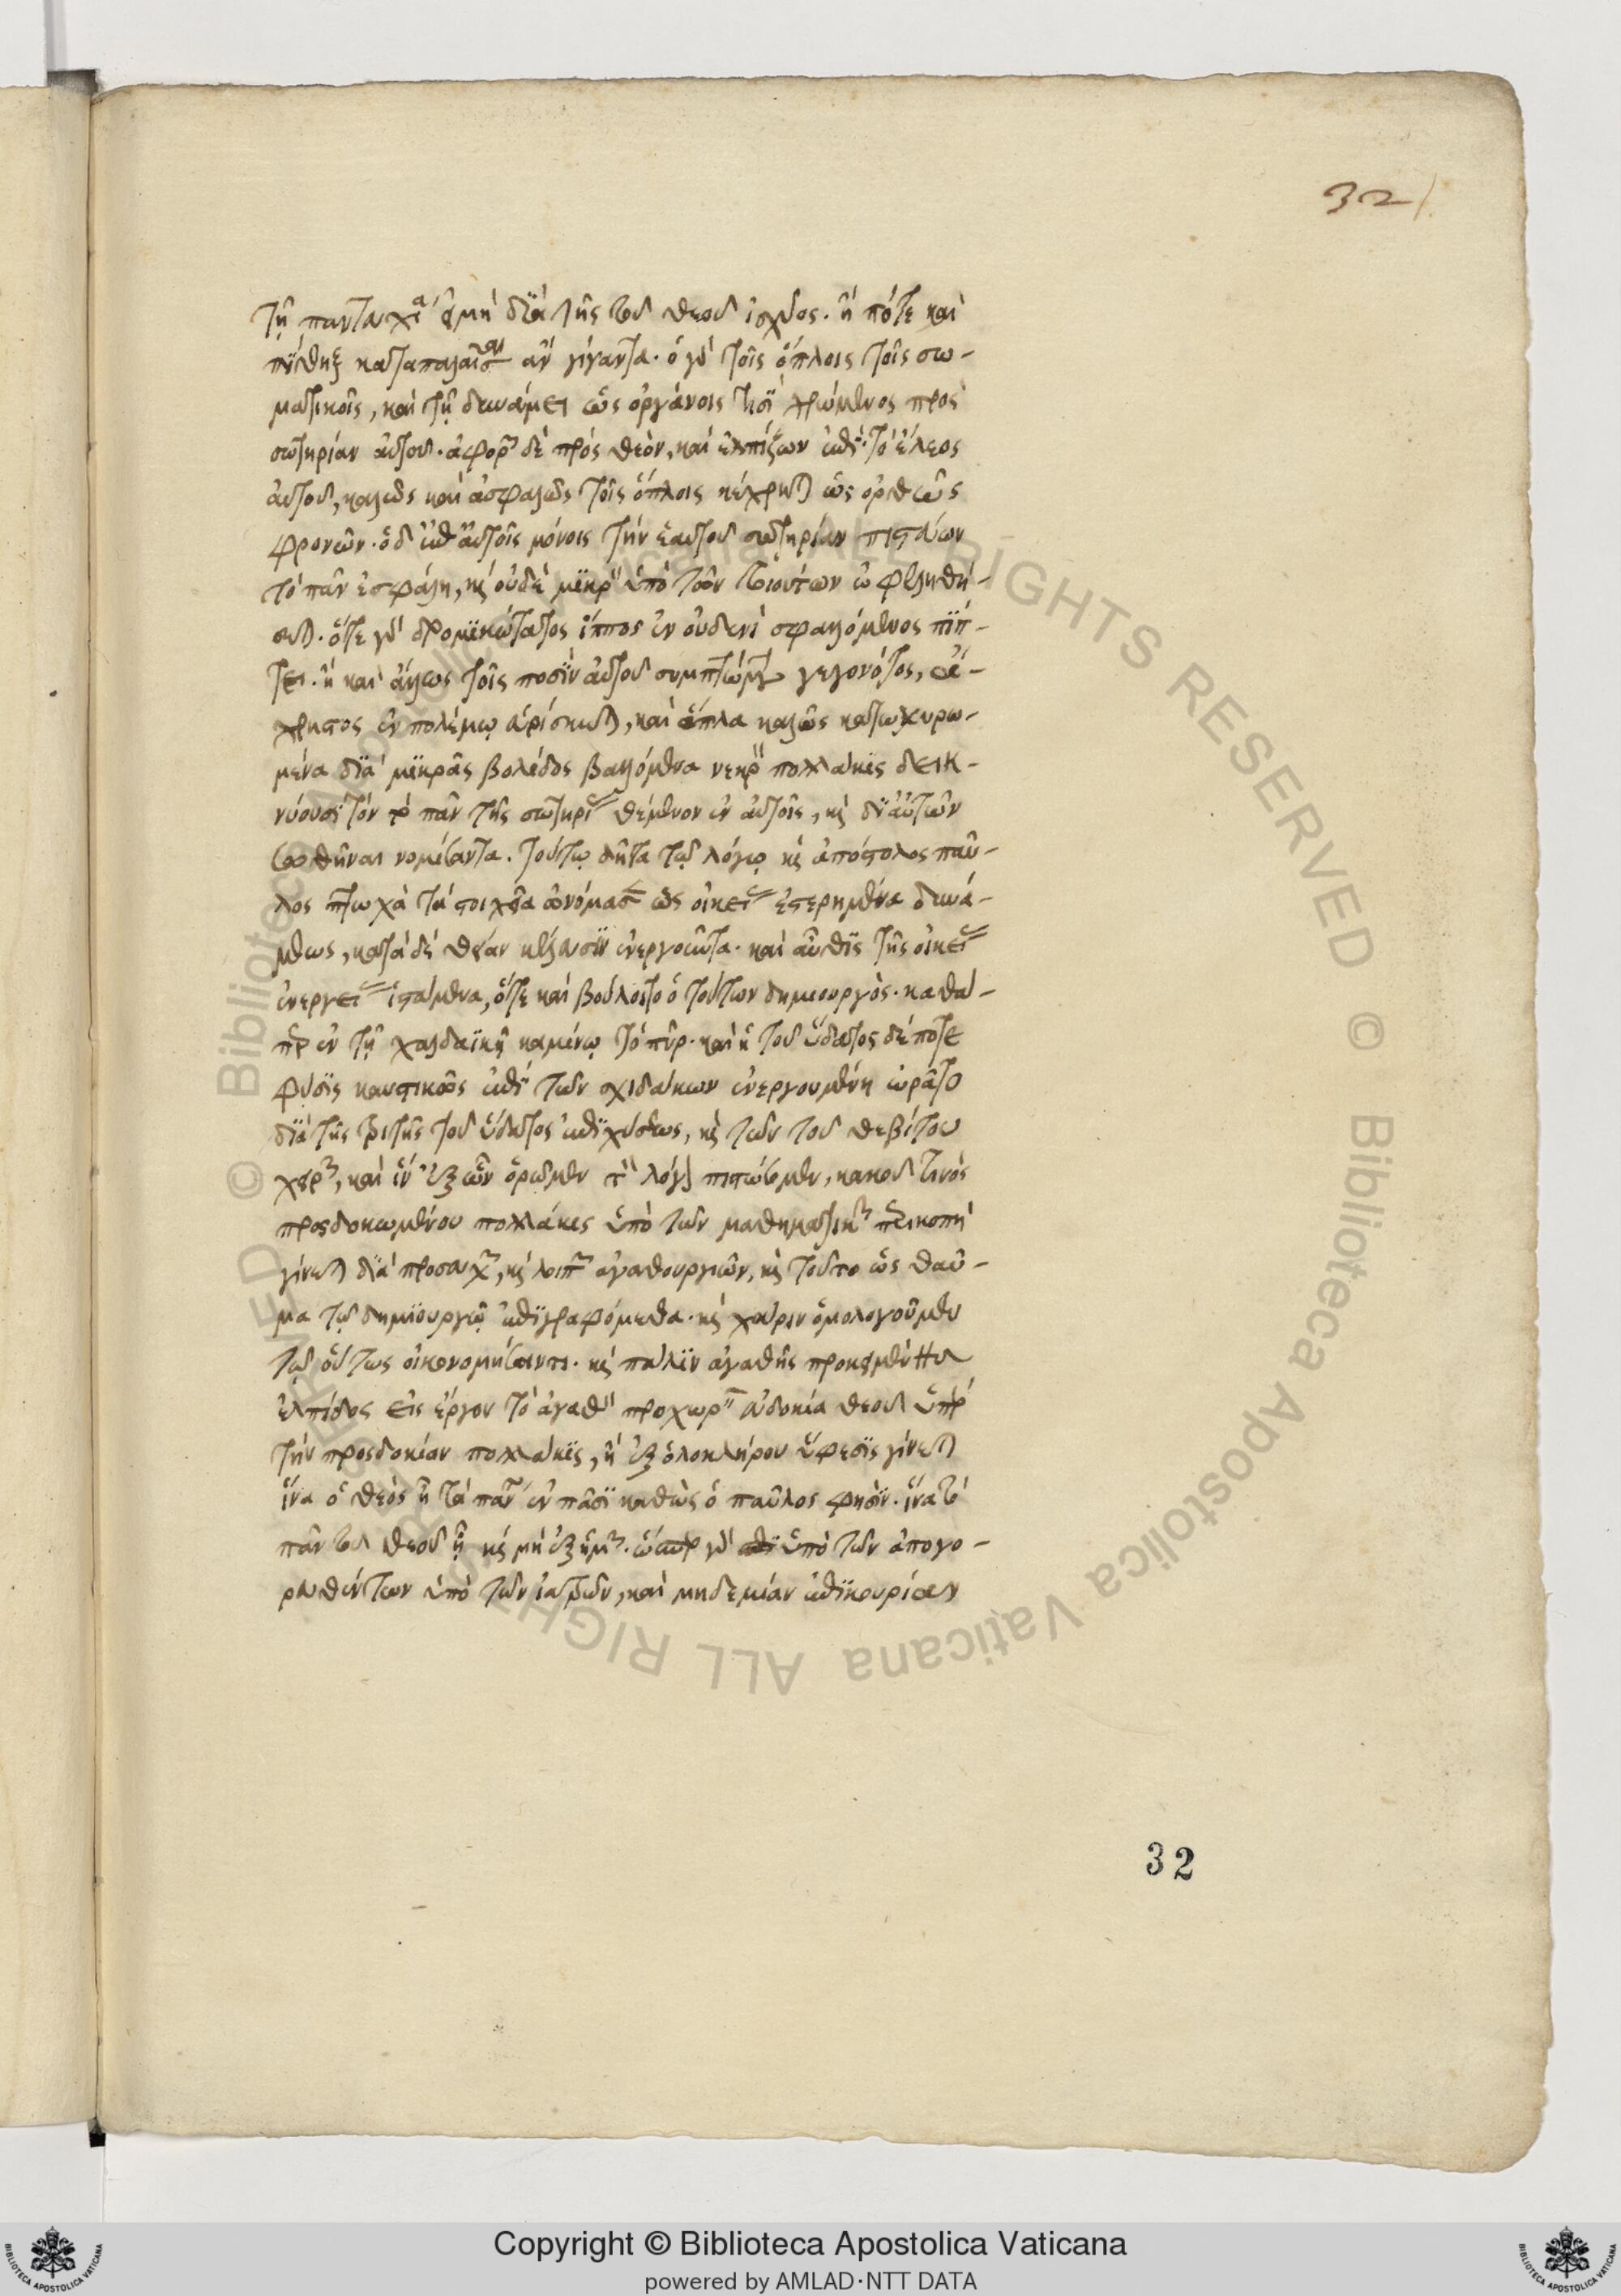 32
τῇ πανταχῇ εἰ μὴ διὰ τῆς τοῦ θεοῦ ἰσχύος. ἤ πότε καὶ
πίθηξ καταπαλαῖσαι ἂν γίγαντα. ὁ γὰρ τοῖς ὅπλοις τοῖς σω-
ματικοῖς, καὶ τῇ δυνάμει ὡς ὀργάνοις τισὶ χρώμενος πρὸς
σωτηρίαν αὐτοῦ. ἀφορῶν δὲ πρὸς θεὸν, καὶ ἐλπίζων ἐπὶ τὸ ἔλεος
αὐτοῦ, καλῶς καὶ ἀσφαλῶς τοῖς ὅπλοις κέχρηται ὡς ὀρθῶς
φρονῶν. ὁ δ' ἐπ' αὐτοῖς μόνοις τὴν ἑαυτοῦ σωτηρίαν πιστεύων
τὸ πᾶν ἐσφάλη, καὶ οὐδὲ μικρὸν ὑπὸ τῶν τοιούτων ὠφεληθή-
σεται. ὅτε γὰρ δρομικώτατος ἵππος ἐν οὐδενὶ σφαλόμενος πίπ-
τει. ἢ καὶ ἄλλως τοῖς ποσὶν αὐτοῦ συμπτώματος γεγονότος,
χρηστος ἐν πολέμῳ εὑρίσκεται, καὶ ὅπλα καλῶς κατωχυρω-
μένα διὰ μικρᾶς βολίδος βαλόμενα νεκρὸν πολλάκις δεικ-
νύουσι τὸν τὸ πᾶν τῆς σωτηρίας θέμενον ἐν αὐτοῖς, καὶ δι' αὐτῶν
σωθῆναι νομίσαντα. τούτῳ δῆτα τῷ λόγῳ καὶ ἀπόστολος παῦ-
λος πτωχὰ τὰ στοιχεῖα ὠνόμασεν ὡς οἰκείας ἐστερημένα δυνά-
μεως, κατὰ δὲ θείαν κέλευσιν ἐνεργοῦντα. καὶ αὖθις τῆς οἰκείας
ἐνεργείας ἱστάμενα, ὅτε καὶ βούλοιτο ὁ τούτων δημιουργὸς. καθά-
περ ἐν τῇ χαλδαϊκῇ καμίνῳ τὸ πῦρ. καὶ ἡ τοῦ ὕδατος δέ ποτε
φύσις καυστικῶς ἐπὶ τῶν σχιδάκων ἐνεργουμένη ὡρᾶτο
διὰ τῆς τριτῆς τοῦ ὕδατος ἐπιχύσεως, καὶ τῶν τοῦ θεβίτου
χειρῶν, καὶ ἵν' ἐξ ὧν ὁρῶμεν τὸν λόγον πιστώσωμεν, κακοῦ τινὸς
προσδοκωμένου πολλάκις ὑπὸ τῶν μαθηματικῶν περικοπὴ
γίνεται διὰ προσευχῶν, καὶ λοιπῶν ἀγαθουργιῶν, καὶ τοῦτο ὡς θαῦ-
μα τῷ δημιουργῷ ἐπιγραφόμεθα. καὶ χάριν ὁμολογοῦμεν
τῷ οὕτως οἰκονομήσαντι. καὶ πάλιν ἀγαθῆς προκειμένης
ἐλπίδος εἰς ἔργον τὸ ἀγαθὸν προχωρεῖν εὐδοκία θεοῦ ὑπὲρ
τὴν προσδοκίαν πολλάκις, ἢ ἐξ ὁλοκλήρου ὕφεσις γίνεται
ἵνα ὁ θεὸς ᾖ τὰ πάντα ἐν πᾶσι καθὼς ὁ παῦλος φησὶν. ἵνα τὸ
πᾶν τοῦ θεοῦ ᾖ καὶ μὴ ἐξ ἡμῶν. ὥσπερ γὰρ ὑπὸ τῶν ἀπογο-
ρευθέντων ὑπὸ τῶν ἰατρῶν, καὶ μηδεμίαν ἐπικουρίαν
32
© Biblioteca Apostolica Vaticana ALL RIGHTS RESERVED © Biblioteca Apostolica Vaticana ALL RIGHTS RESERVED
Copyright © Biblioteca Apostolica Vaticana
powered by AMLAD·NTT DATA